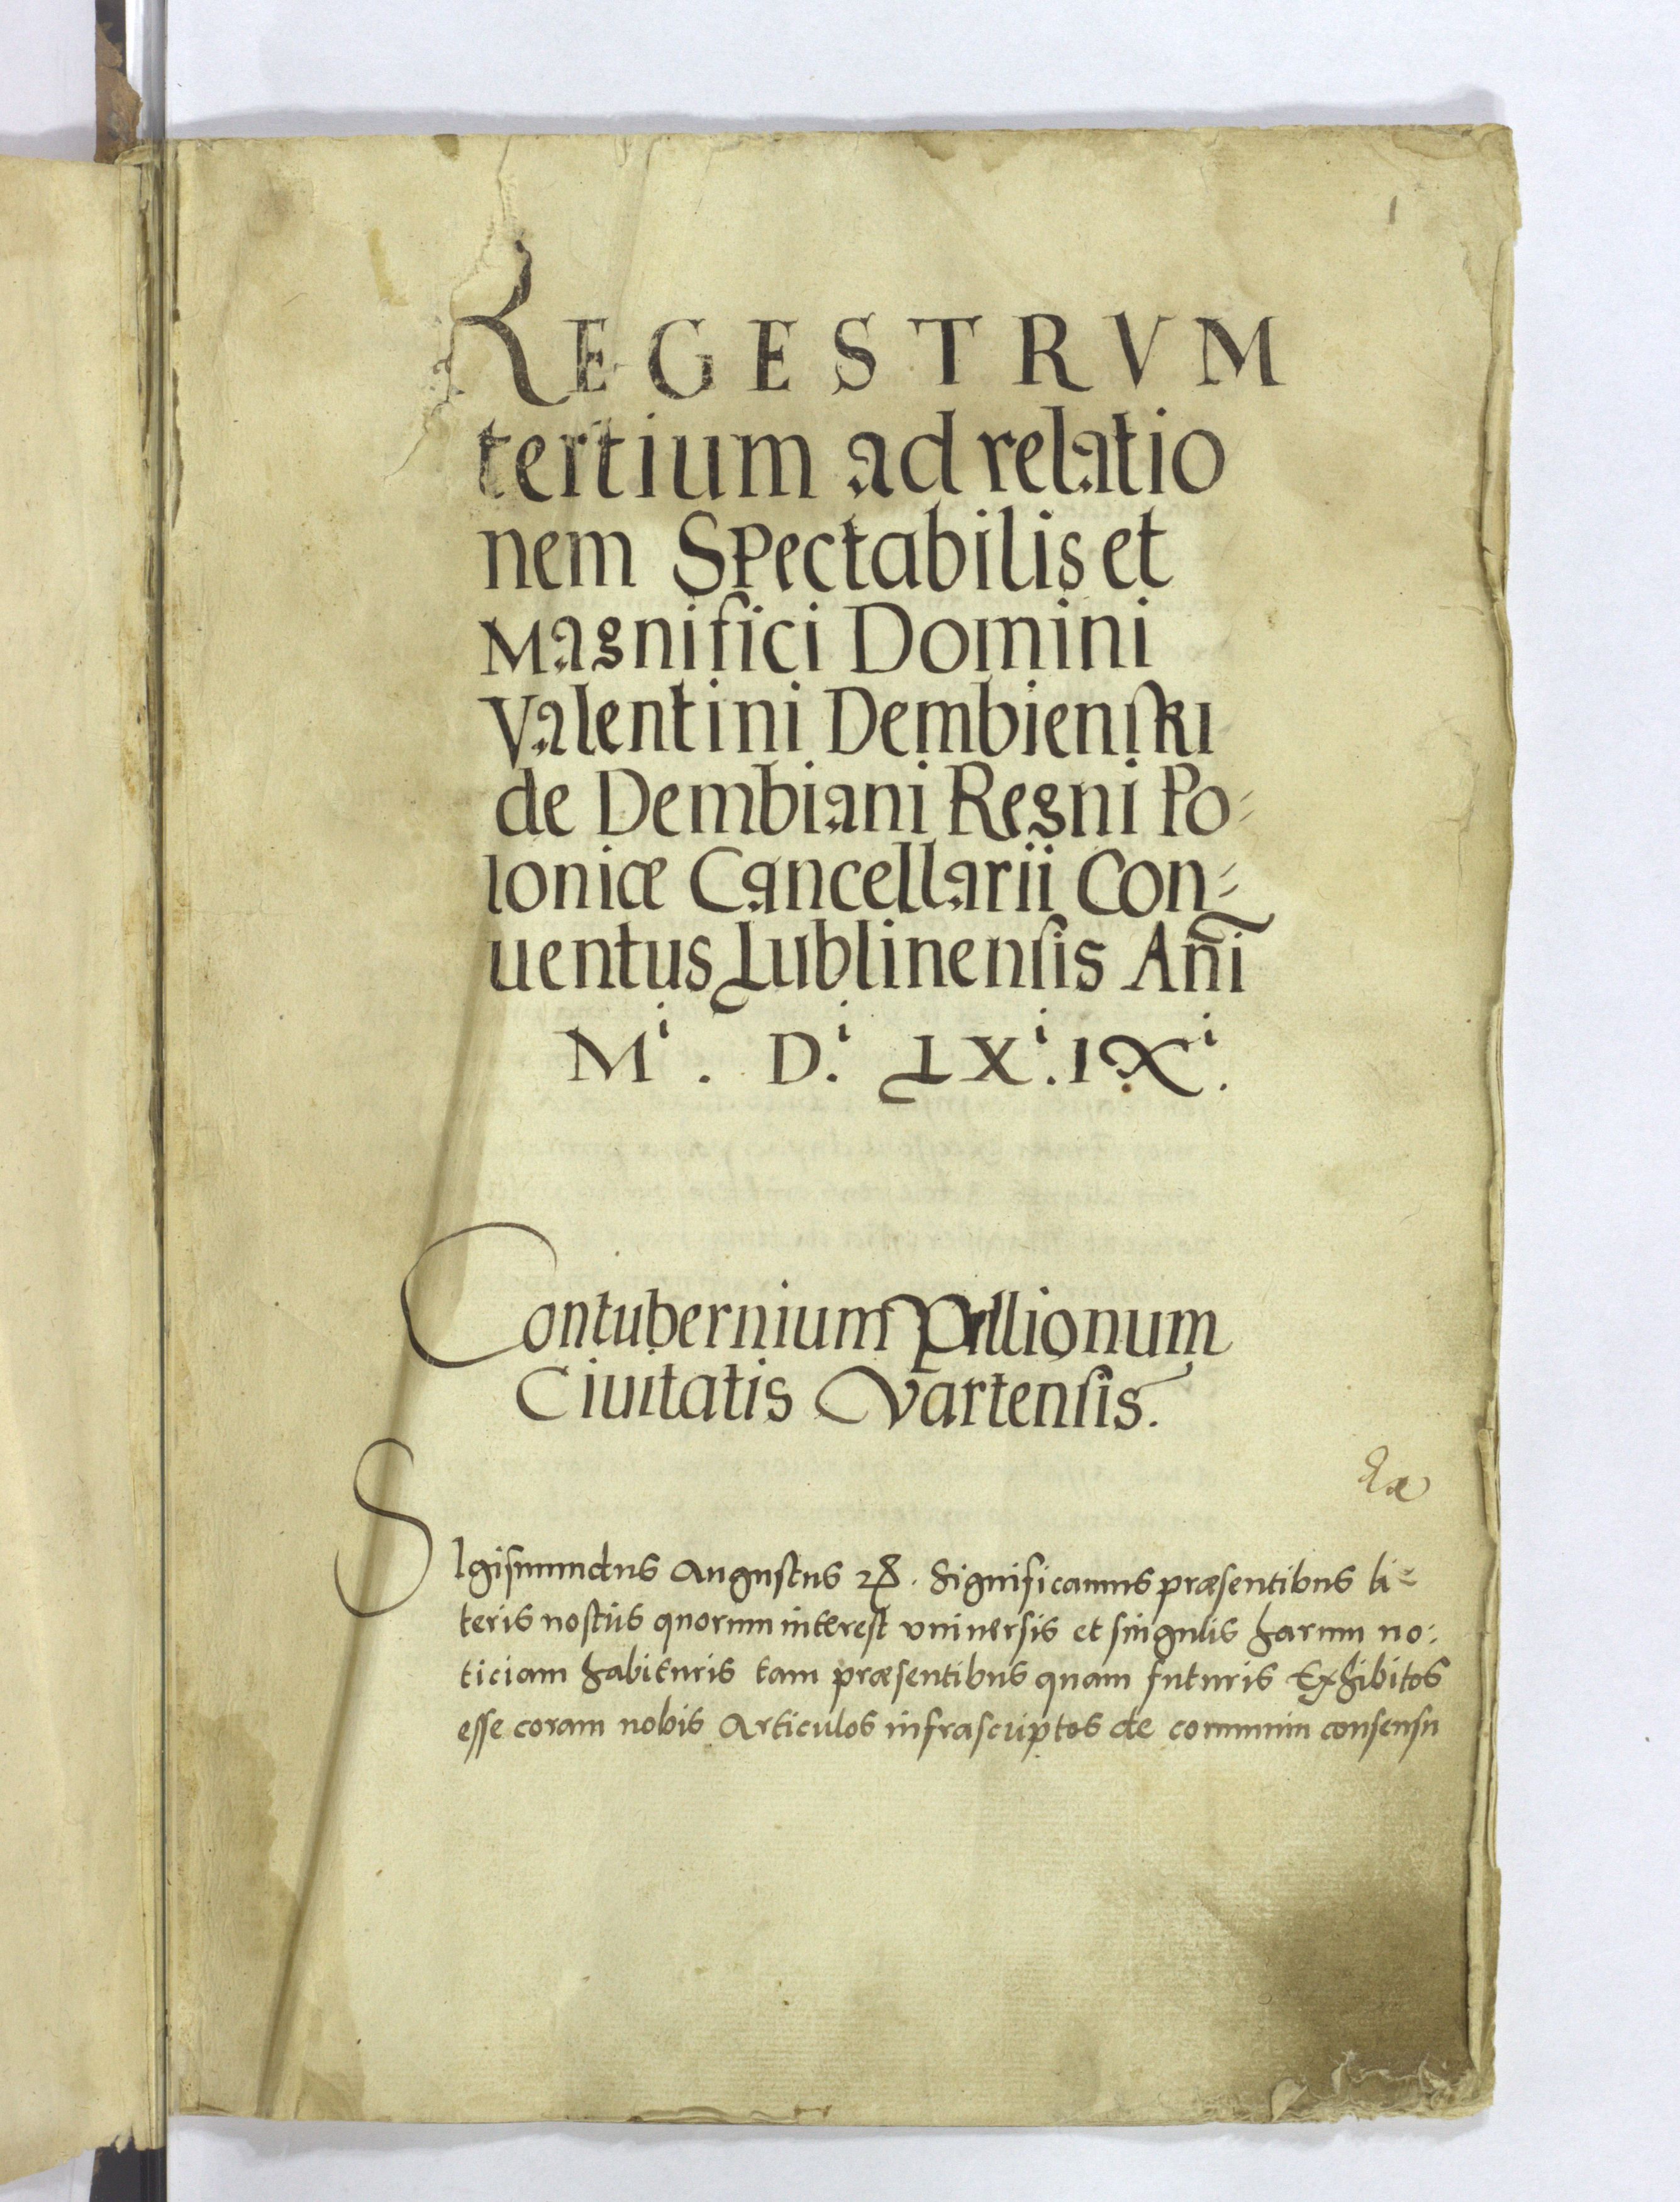 1
REGESTRVM
tertium ad relatio
nem Spectabilis et
Magnifici Domini
Valentini Dembienſki
de Dembiani Regni Po=
loniæ Cancellarii Con=
uentus Lublinenſis Añi
Mⁱ. D.ⁱ LXⁱ.IXⁱ.
Contubernium Pellionum
Ciuitatis Vartenſis.
SIgiſmundus Auguſtus Significamus præsentibus li=
teris noſtris quorum interest vniuersis et singulis harum no:
ticiam habituris tam præsentibus quam futuris Exhibitos
esse coram nobis Articulos infrascriptos de communi consensu